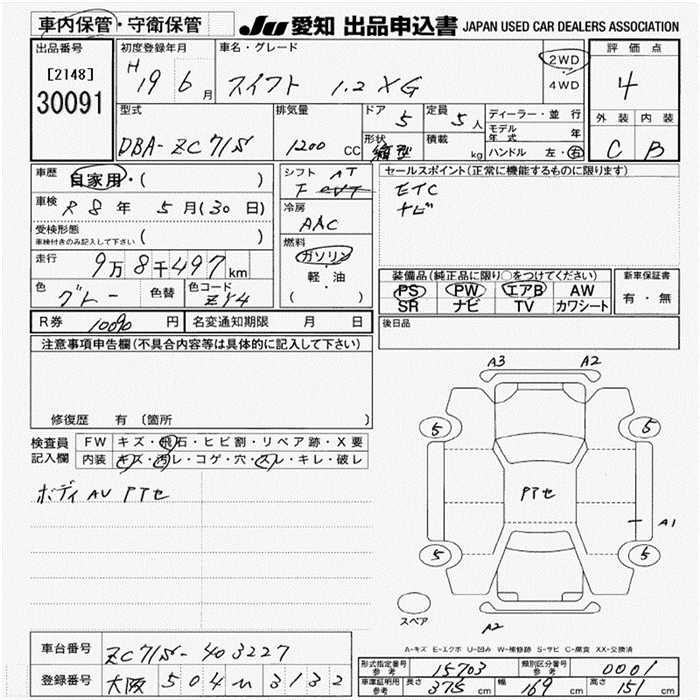 車内保管・守衛保管 JU 愛知 出品申込書 JAPAN USED CAR DEALERS ASSOCIATION
出品番号
[2148]
30091
初度登録年月
H 19 6月
車名・グレード
スイフト 1.2 XG
2WD
4WD
評価点
4
外装 内装
C B
型式
DBA-ZC71S
排気量
1200 CC
ドア 5
定員 5人
形状 箱型
積載 kg
ディーラー・並行
モデル年式 年
ハンドル 左・右
車歴 自家用・( )
車検 R8年 5月(30日)
受検形態
車検付きのみ記入して下さい ( )
走行 9万8千497km
色 グレー 色替 色コード ZY4
シフト AT
冷房 AAC
燃料
ガソリン
軽・油
( )
セールスポイント(正常に機能するものに限ります)
ETC
ナビ
装備品(純正品に限り○をつけてください)
PS PW エアB AW
SR ナビ TV カワシート
新車保証書
有・無
R券 10090円 名変通知期限 月 日
後日品
注意事項申告欄(不具合内容等は具体的に記入して下さい)
修復歴 有〔箇所 〕
検査員記入欄
FW キズ・飛石・ヒビ割・リペア跡・X要
内装 キズ・汚レ・コゲ・穴・スレ・キレ・破レ
ボディ AU PTセ
A3 A2
5 5
PTセ
A1
5 5
スペア
A2
A-キズ E-エクボ U-凹み W-補修跡 S-サビ C-腐食 XX-交換済
車台番号 ZC71S-403227
登録番号 大阪 504 ﾑ 3132
形式指定番号 参考 15703 類別区分番号 参考 0001
車庫証明用 参考 長さ 375 cm 幅 169 cm 高さ 151 cm